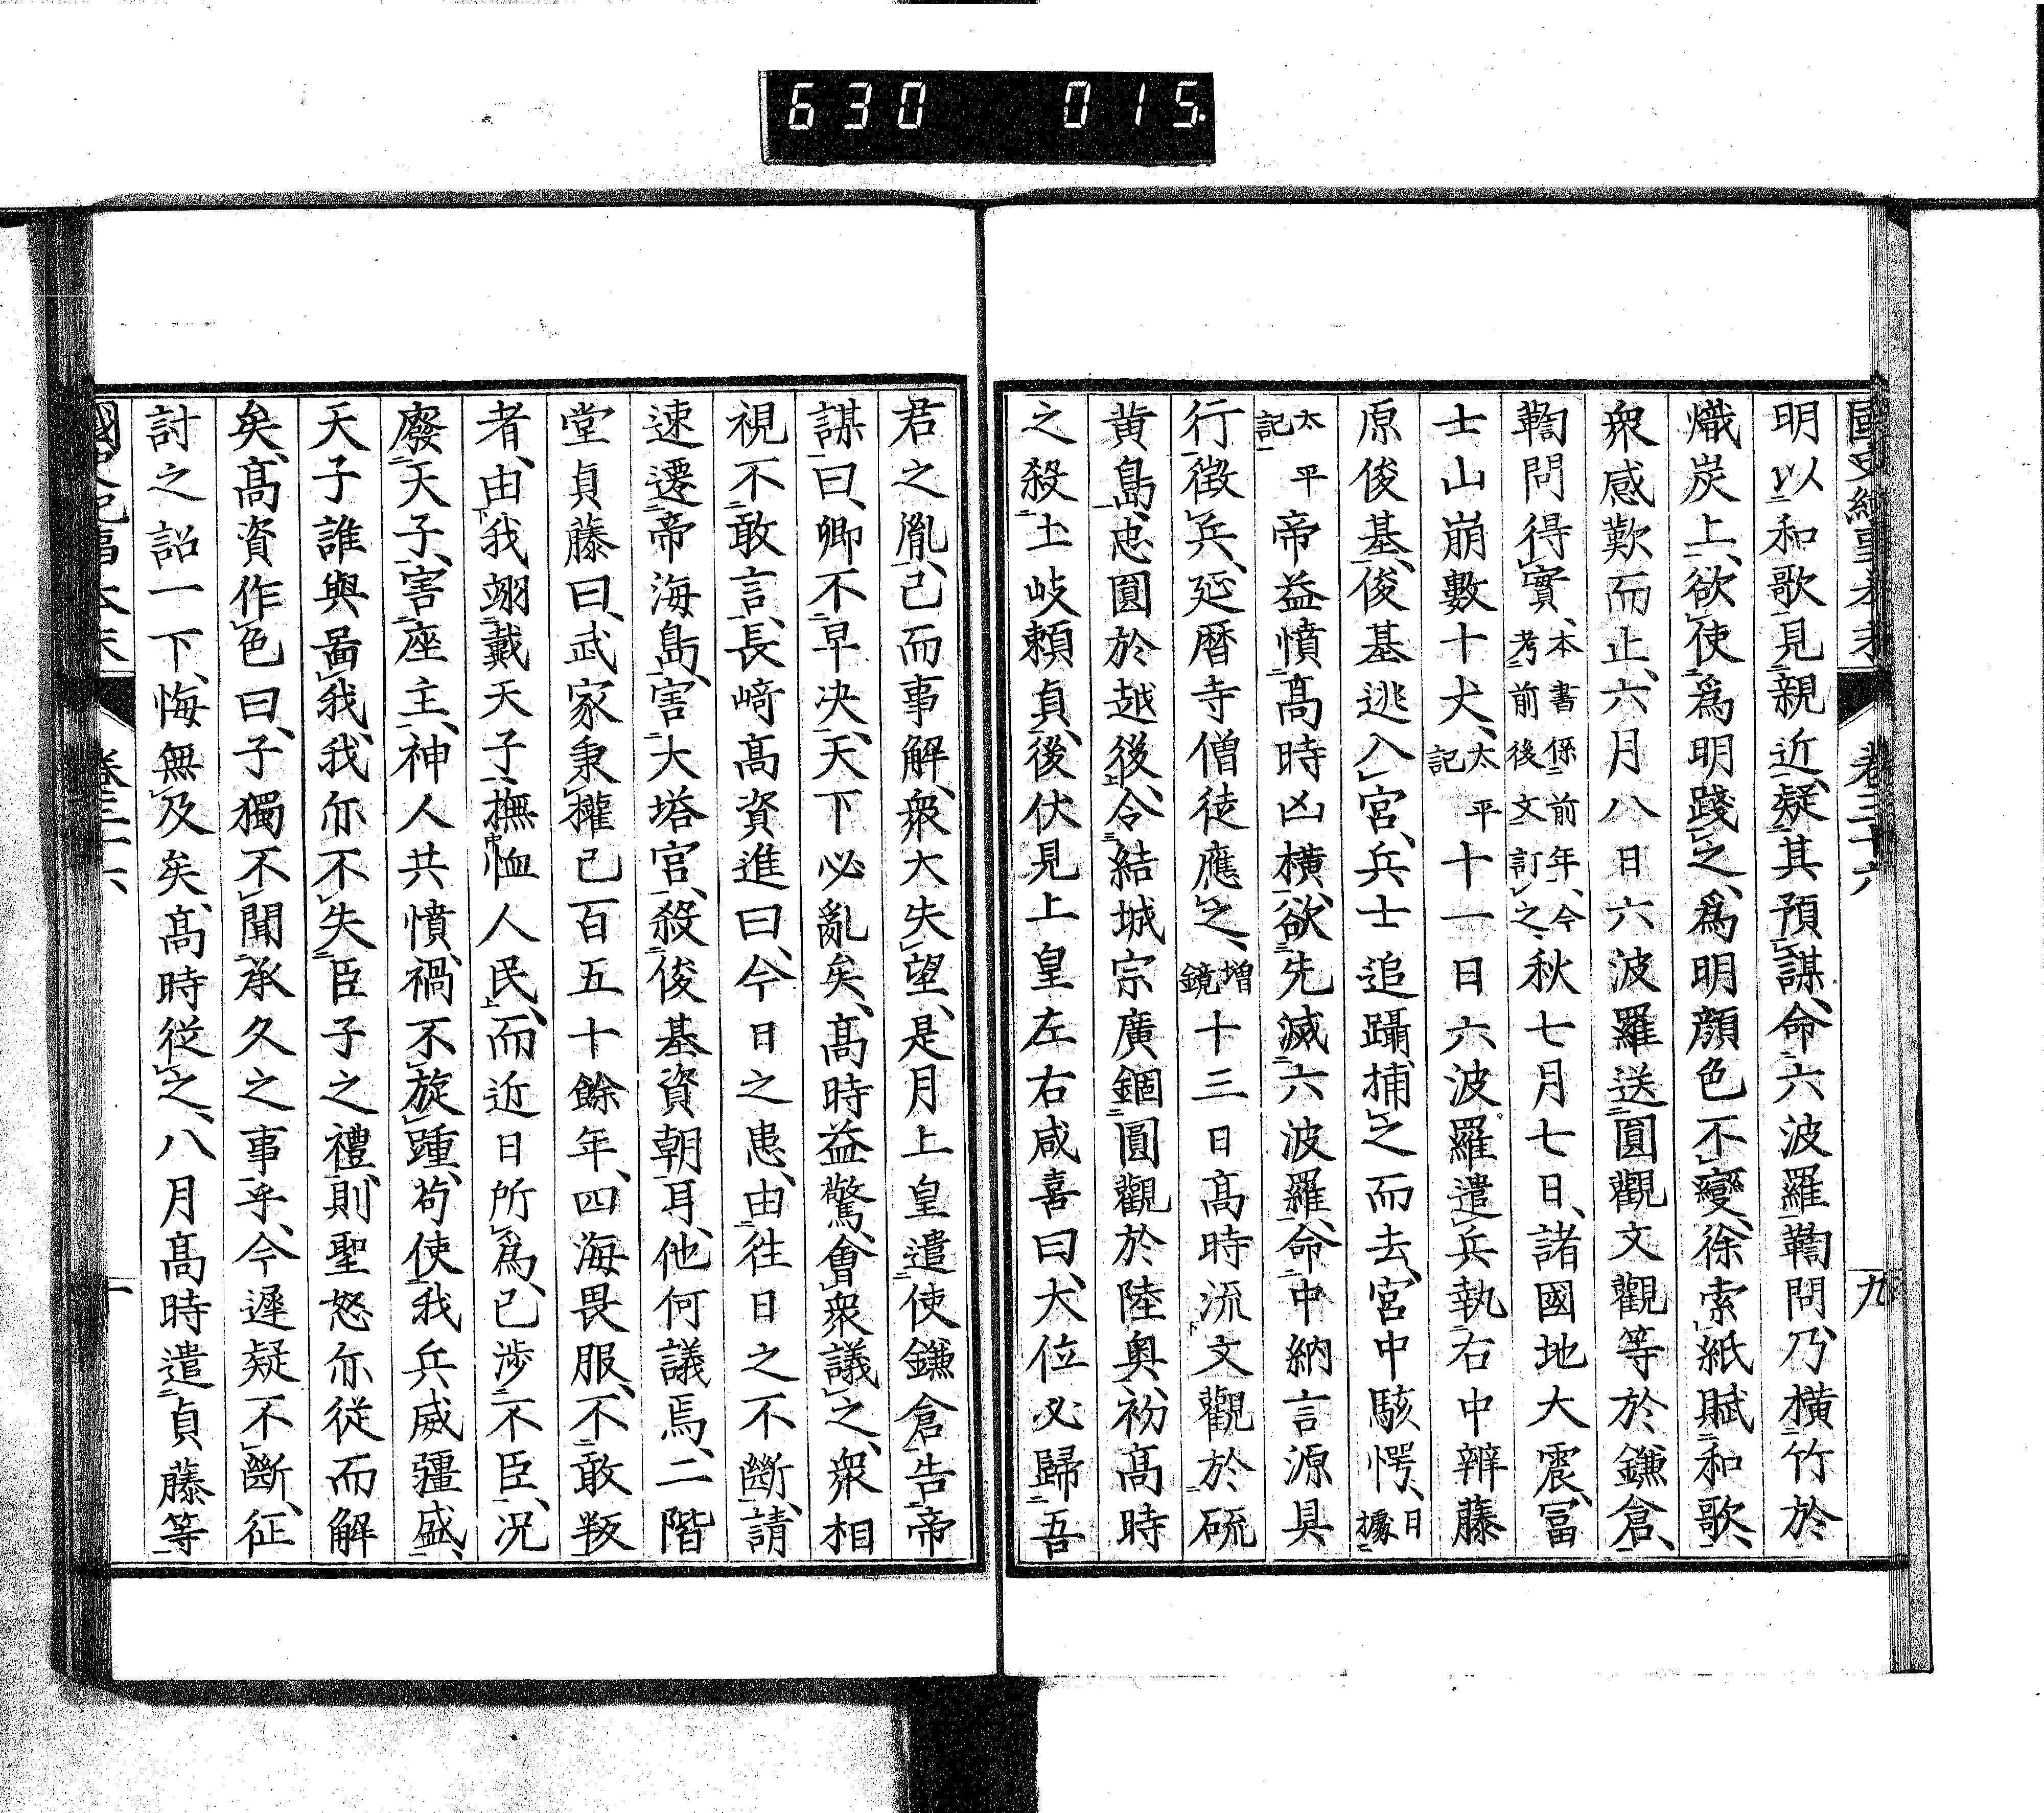 630 015.
國史紀事本末 卷三十六 九
明以和歌見親近、疑其預謀、命六波羅鞫問、乃横竹於
熾炭上、欲使爲明踐之、爲明顔色不變、徐索紙賦和歌、
衆感歎而止、六月八日六波羅送圓觀文觀等於鎌倉、
鞫問得實、本書係前年、今考前後文訂之、秋七月七日、諸國地大震、冨
士山崩數十丈、太平記十一日六波羅遣兵執右中辨藤
原俊基、俊基逃入宮、兵士追躡捕之而去、宮中駭愕、據日
太平記帝益憤髙時凶横、欲先滅六波羅、命中納言源具
行徴兵、延暦寺僧徒應之、增鏡十三日髙時流文觀於硫
黄島、忠圓於越後、令結城宗廣錮圓觀於陸奥、初髙時
之殺土岐頼貞、後伏見上皇左右咸喜曰、大位必歸吾
君之胤、已而事解、衆大失望、是月上皇遣使鎌倉告帝
謀曰、卿不早决、天下必亂矣、髙時益驚、會衆議之、衆相
視不敢言、長崎髙資進曰、今日之患、由往日之不斷、請
速遷帝海島、害大塔宮、殺俊基資朝耳、他何議焉、二階
堂貞藤曰、武家秉權已百五十餘年、四海畏服、不敢叛
者、由我翊戴天子、撫恤人民、而近日所爲、已渉不臣、况
廢天子、害座主、神人共憤、禍不旋踵、苟使我兵威彊盛、
天子誰與啚我、我亦不失臣子之禮、則聖怒亦從而解
矣、髙資作色曰、子獨不聞承久之事乎、今遲疑不斷、征
討之詔一下、悔無及矣、髙時從之、八月髙時遣貞藤等
國史紀事本末 卷三十六 十